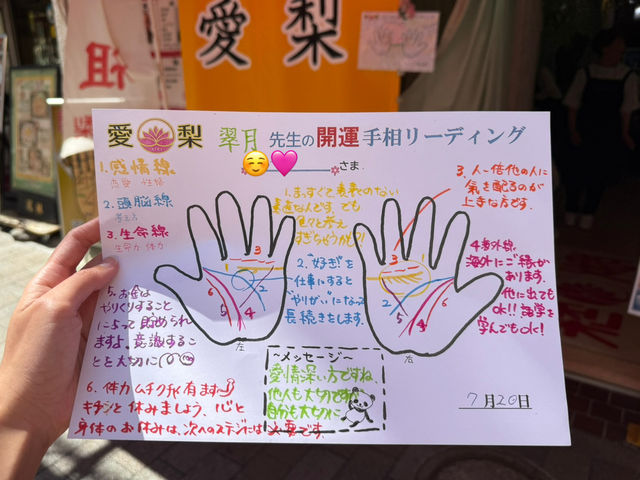 愛梨
祖
愛梨 翠月 先生の開運手相リーディング
さま
1.感情線
恋愛 性格
2.頭脳線
考え方
3.生命線
生命力 体力
1.まっすぐで裏表のない
素直な人です。でも
色々と考え
すぎちゃうかも?!
2."好き!"を
仕事にすると
"やりがい"になって
長続きをします。
3.人一倍他の人に
気を配るのが
上手な方です。
4.海外線
海外にご縁があ
ります。
他に出ても
ok!! 語学を
学んでもok!
5.お金は
やりくりすること
によって貯められ
ますよ。意識するこ
とを大切に
6.体力 ムチャクチャ有ます
キチンと休みましょう。心と
身体のお休みは、次へのステージには必要です。
3
1
2
6
5
4
左
3
1
2
6
5
4
右
~メッセージ~
愛情深い方ですね、
他人も大切です。
自分も大切に
7月20日